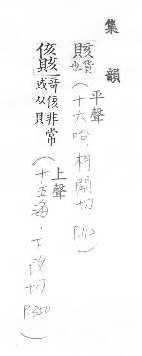 集韻
賅貨也(平聲十六咍,柯開切
侅賅奇侅非常或从貝(上聲十五海,下改切P.350)